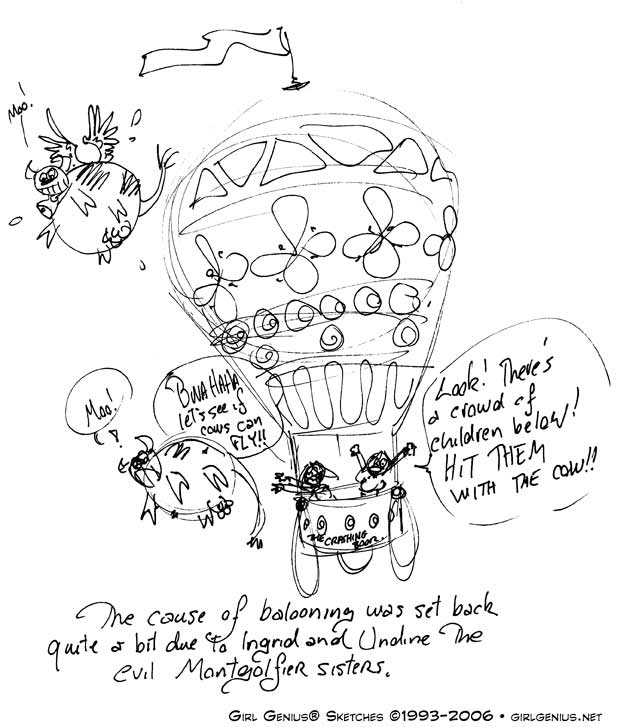 Moo!
Moo!
BWAHAHA
let's see if
cows can
FLY!!
Look! There's
a crowd of
children below!
HIT THEM
WITH THE COW!!
THE CRASHING
The cause of balooning was set back
quite a bit due to Ingrid and Undine The
evil Montgolfier sisters.
GIRL GENIUS® SKETCHES ©1993-2006 • GIRLGENIUS.NET